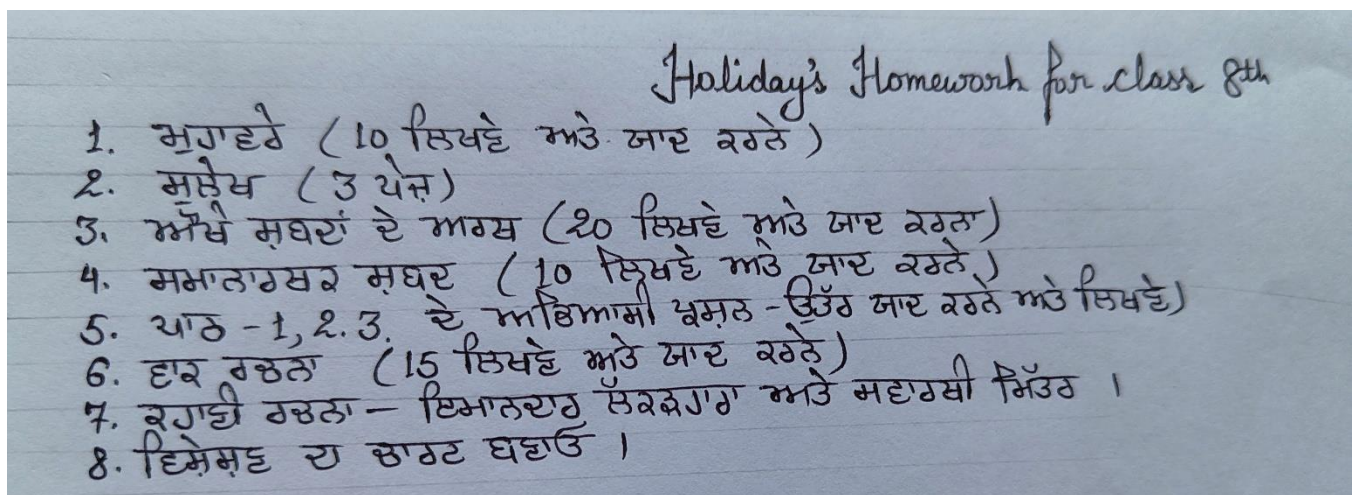 Holiday's Homework for class 8th
1. ਮੁਹਾਵਰੇ (10 ਲਿਖਣੇ ਅਤੇ ਯਾਦ ਕਰਨੇ)
2. ਸੁਲੇਖ (3 ਪੇਜ਼)
3. ਔਖੇ ਸ਼ਬਦਾਂ ਦੇ ਅਰਥ (20 ਲਿਖਣੇ ਅਤੇ ਯਾਦ ਕਰਨਾ)
4. ਸਮਾਨਾਰਥਕ ਸ਼ਬਦ (10 ਲਿਖਣੇ ਅਤੇ ਯਾਦ ਕਰਨੇ)
5. ਪਾਠ -1, 2. 3. ਦੇ ਅਭਿਆਸੀ ਪ੍ਰਸ਼ਨ - ਉੱਤਰ ਯਾਦ ਕਰਨੇ ਅਤੇ ਲਿਖਣੇ)
6. ਵਾਕ ਰਚਨਾ (15 ਲਿਖਣੇ ਅਤੇ ਯਾਦ ਕਰਨੇ)
7. ਕਹਾਣੀ ਰਚਨਾ - ਇਮਾਨਦਾਰ ਲੱਕੜਹਾਰਾ ਅਤੇ ਸਵਾਰਥੀ ਮਿੱਤਰ ।
8. ਵਿਸ਼ੇਸ਼ਣ ਦਾ ਚਾਰਟ ਬਣਾਓ ।